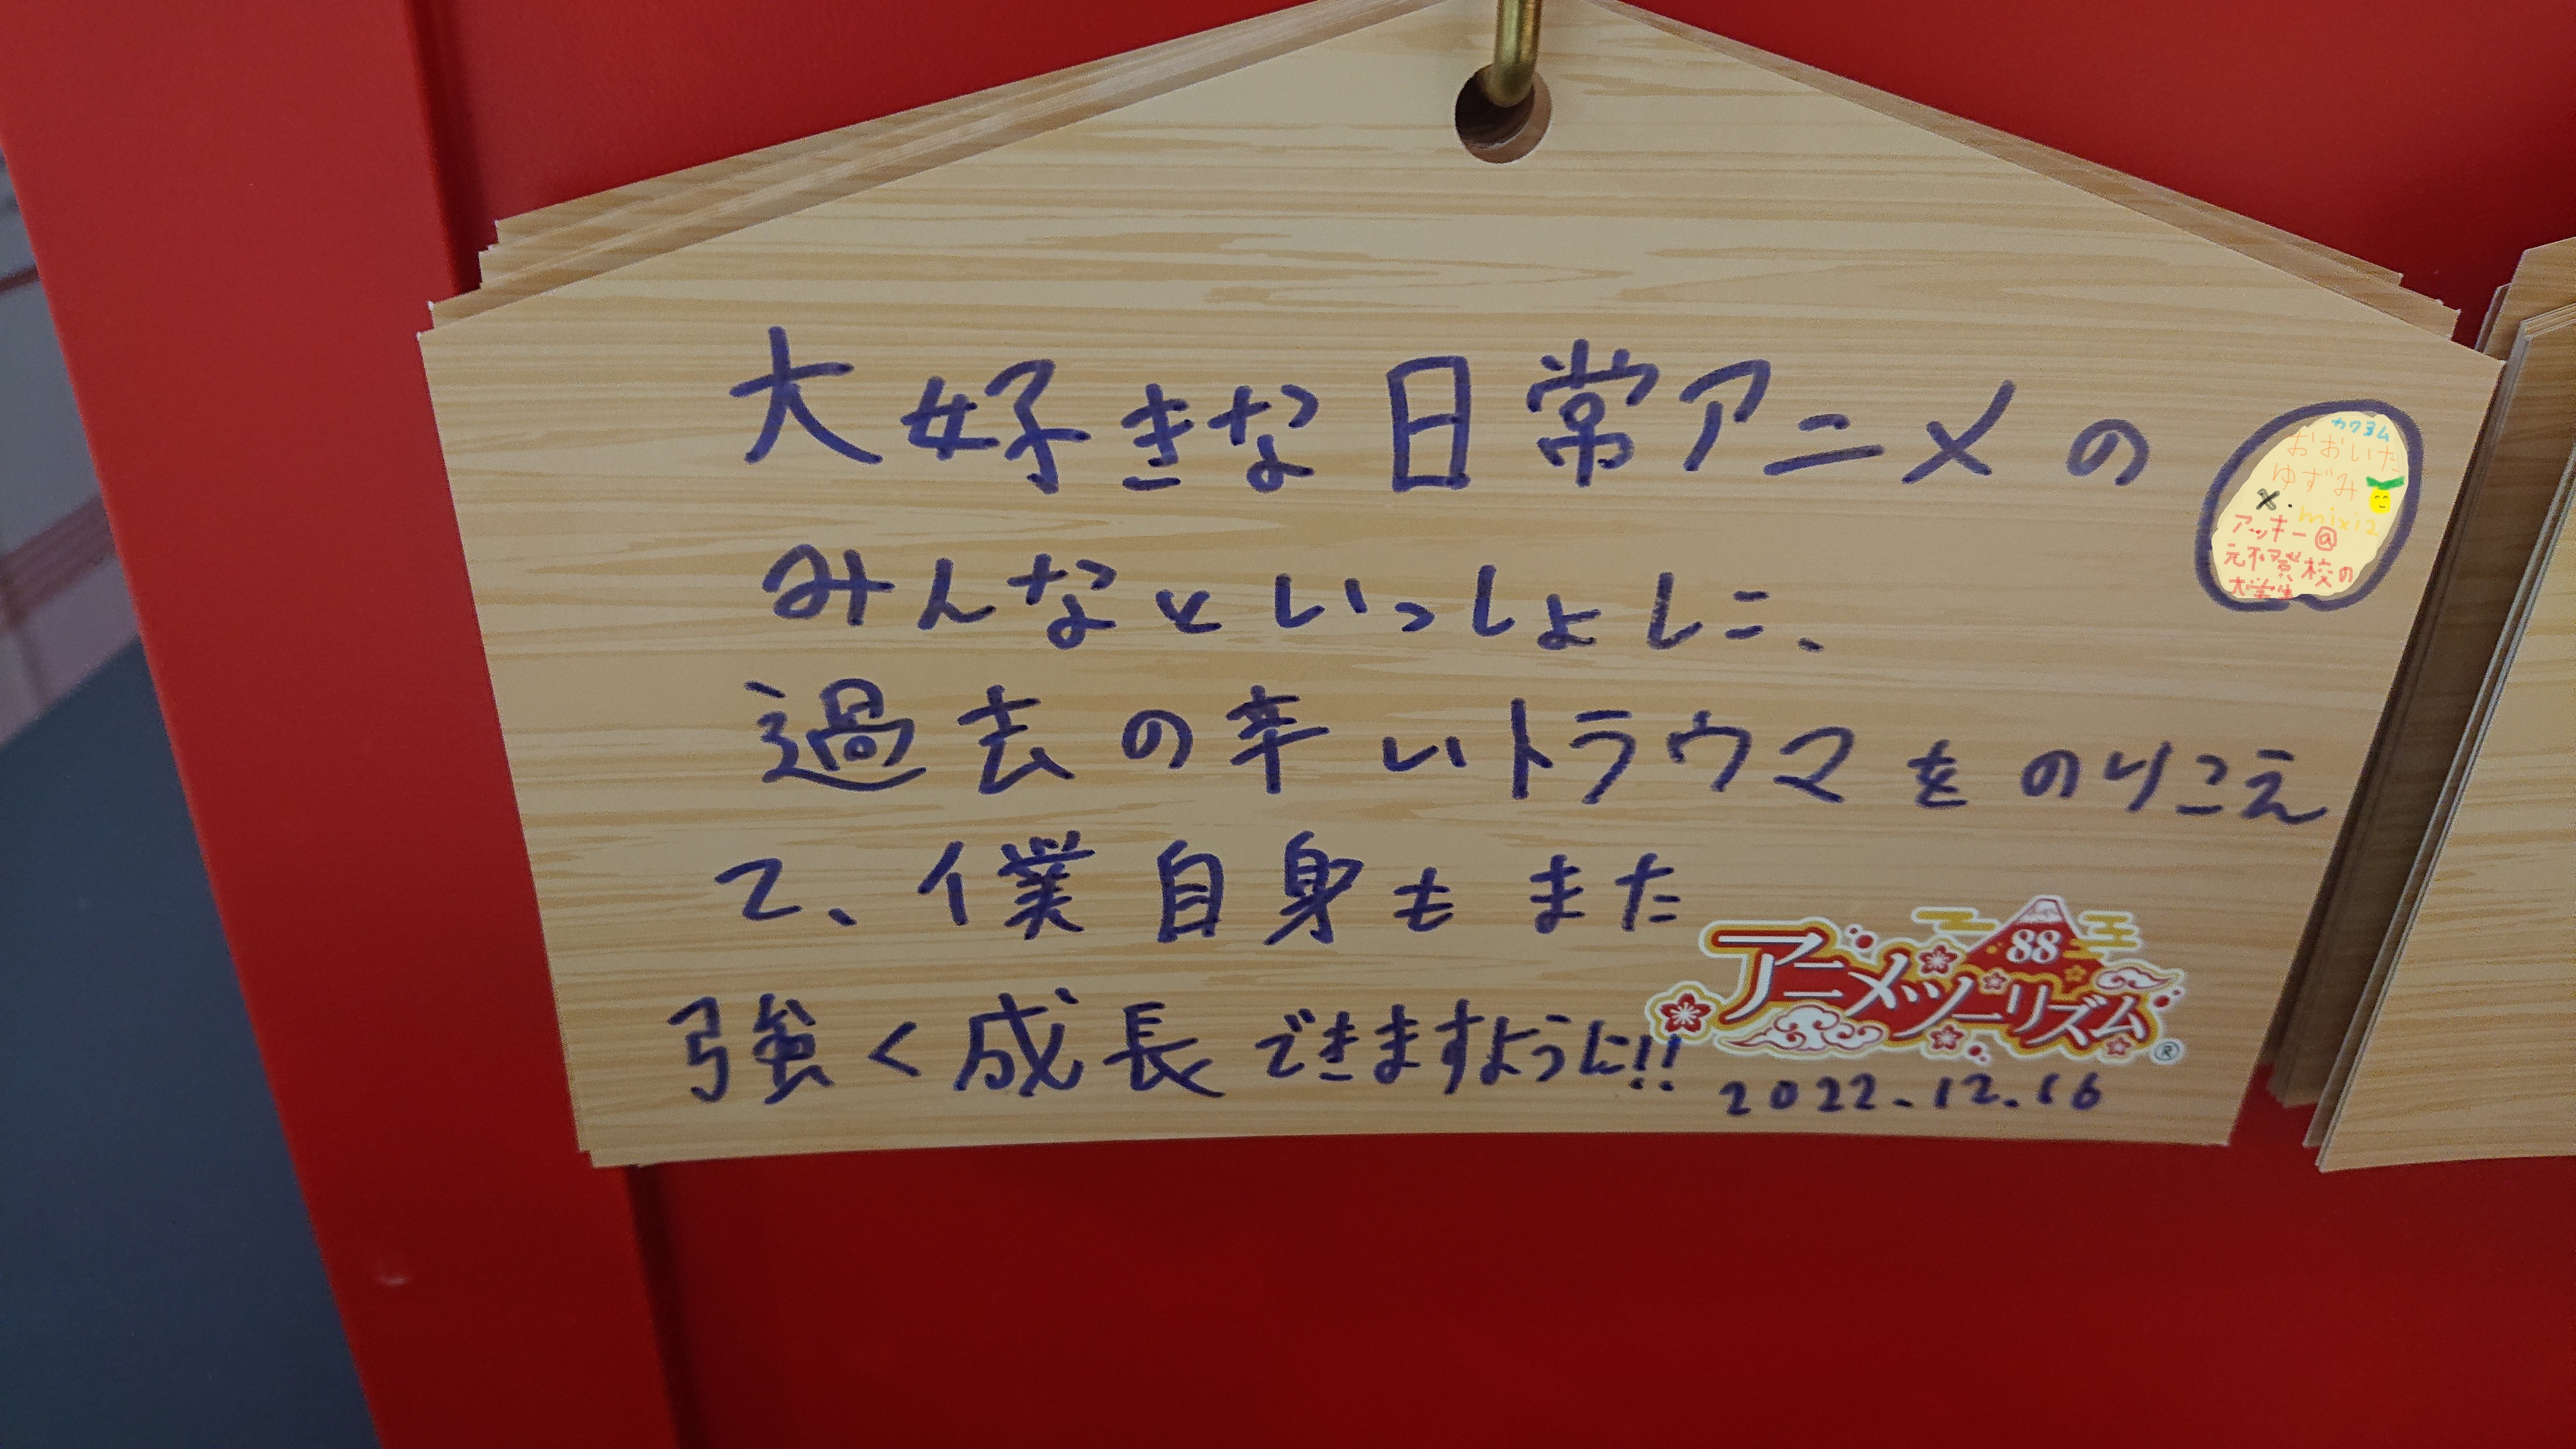 大好きな日常アニメの
みんなといっしょに、
過去の辛いトラウマをのりこえ
て、僕自身もまた
強く成長できますように!!
カクヨム
おおいた
ゆずみ
X・mixi2
アッキー@
元不登校の
大学生
88
アニメツーリズム®
2022.12.16